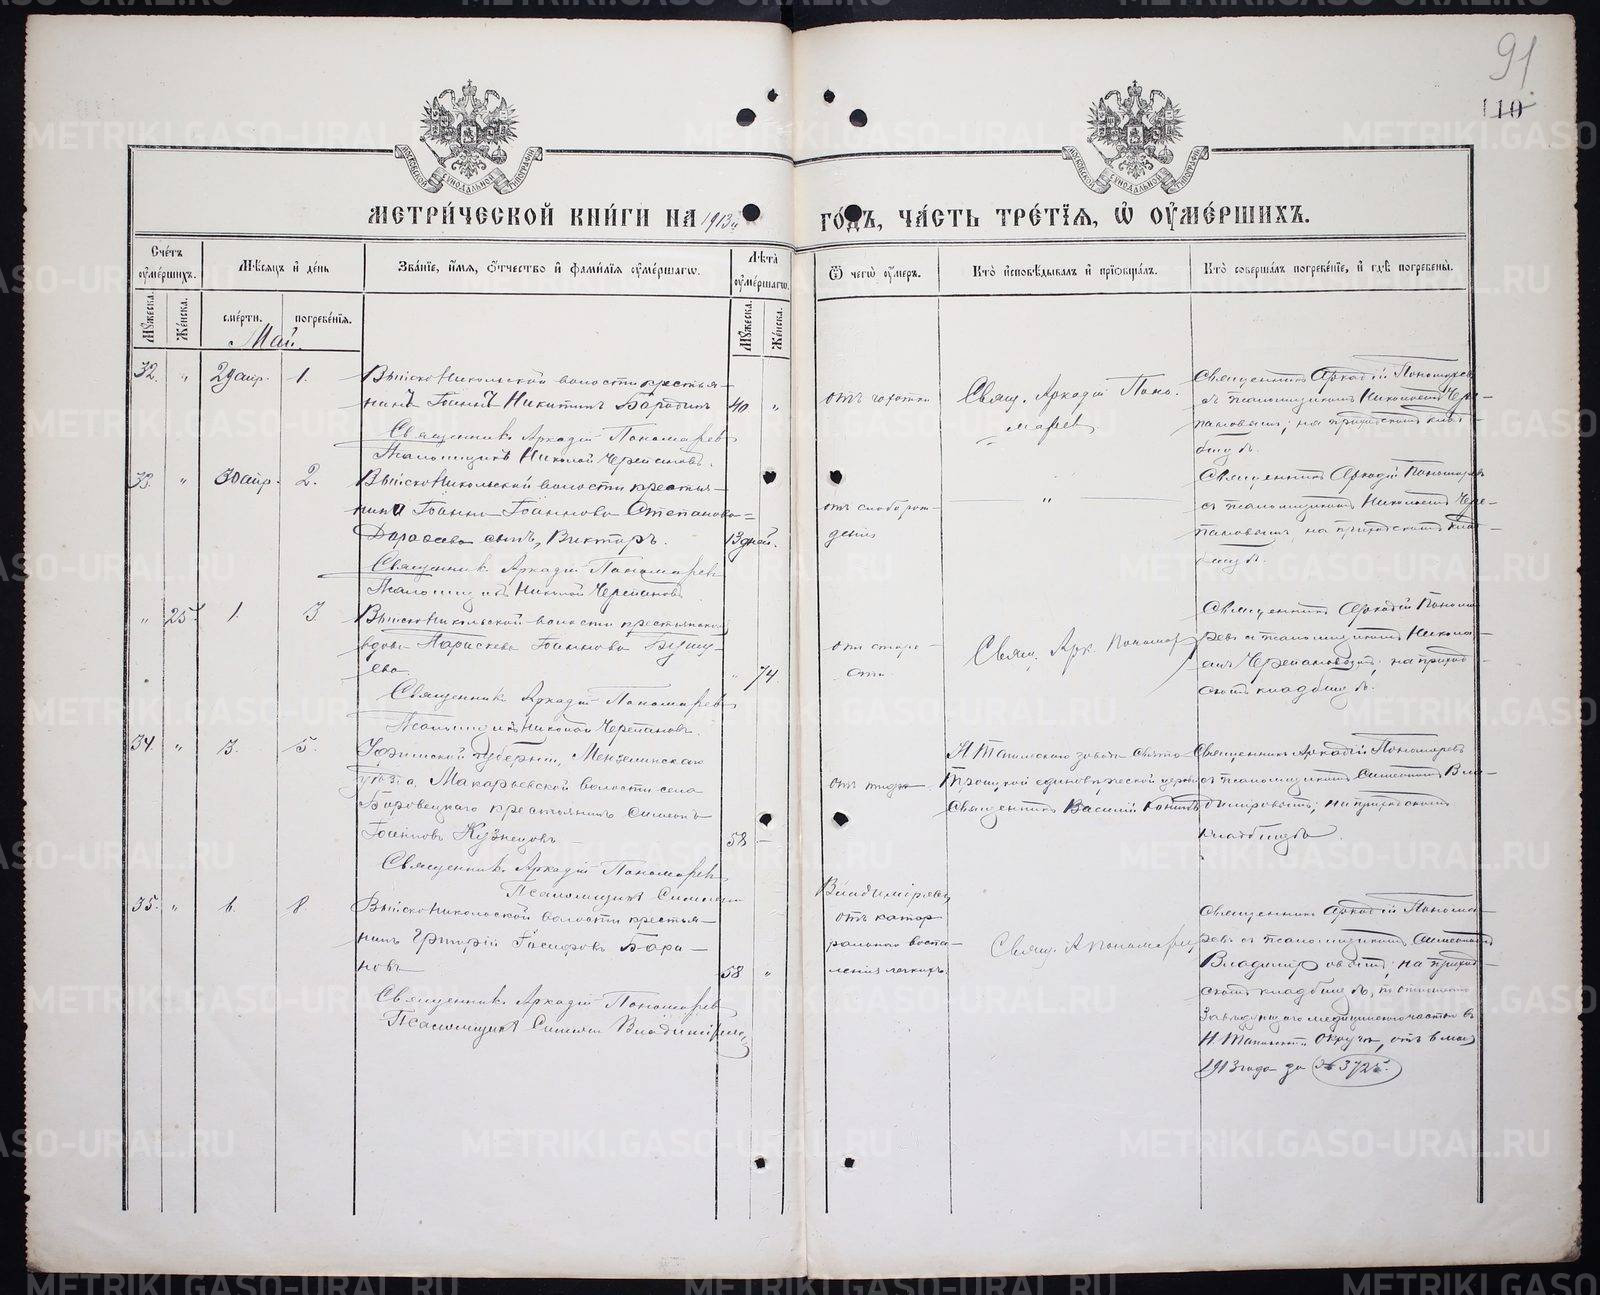 91
110
МОСКОВСКОЙ СѴНОДАЛЬНОЙ ТИПОГРАФІИ
МОСКОВСКОЙ СѴНОДАЛЬНОЙ ТИПОГРАФІИ
МЕТРИ́ЧЕСКОЙ КНИ́ГИ НА 1913й
ГО́ДЪ, ЧА́СТЬ ТРЕ́ТІѦ, Ѡ҆ ОУ҆МЕ́РШИХЪ.
Сче́тъ оу҆ме́ршихъ.
Мѣ́сѧцъ и҆ де́нь
Зва́ніе, и҆́мѧ, ѻ҆́тчество и҆ фами́лія оу҆ме́ршагѡ.
Лѣ́та оу҆ме́ршагѡ.
Ѿ чегѡ̀ оу҆́меръ.
Кто̀ и҆сповѣ́дывалъ и҆ прїѡбща́лъ.
Кто̀ соверша́лъ погребе́ніе, и҆ гдѣ̀ погребены̀.
Мꙋ́жеска.
Же́нска.
сме́рти.
погребе́нія.
Мꙋ́жеска.
Же́нска.
Май.
32. " 29 апр. 1.
Выйско Никольской волости крестья-
нинъ Іоаннъ Никитинъ Бородинъ 40 "
Священникъ Аркадій Пономаревъ
Псаломщикъ Николай Черепановъ.
отъ чахотки
Свящ. Аркадій Поно-
маревъ.
Священникъ Аркадій Пономаревъ
съ псаломщикомъ Николаемъ Чере-
пановымъ; на приходскомъ клад-
бищѣ.
33. " 30 апр. 2.
Выйско Никольской волости крестья-
нина Іоанна Іоаннова Степанова-
сынъ, Викторъ. 13 дней.
Священникъ Аркадій Пономаревъ
Псаломщикъ Николай Черепановъ
отъ слаборож-
денія
"
Священникъ Аркадій Пономаревъ
съ псаломщикомъ Николаемъ Чере-
пановымъ, на приходскомъ клад-
бищѣ.
" 25. 1. 3.
Выйско Никольской волости крестьянская
вдова Параскева Іоаннова
" 74.
Священникъ Аркадій Пономаревъ
Псаломщикъ Николай Черепановъ.
отъ старо-
сти
Свящ. Арк. Пономар
Священникъ Аркадій Понома-
ревъ съ псаломщикомъ Никола-
емъ Черепановымъ; на приход-
скомъ кладбищѣ.
34. " 3. 5.
Уфимской губерніи, Мензелинскаго
уѣзда, Макарьевской волости села
Боровецкаго крестьянинъ Симеонъ
Іоанновъ Кузнецовъ 58 -
Священникъ Аркадій Пономаревъ
Псаломщикъ Симеонъ
Владиміровъ
Н. Тагильскаго завода Свято-
Троицкой единовѣрческой церкви
Священникъ Василій
Священникъ Аркадій Пономаревъ
съ псаломщикомъ Симеономъ Вла-
диміровымъ; на приходскомъ
кладбищѣ.
35. " 6. 8
Выйско Никольской волости крестья-
нинъ Григорій Іосифовъ Бара-
новъ 58 "
Священникъ Аркадій Пономаревъ
Псаломщикъ Симеонъ Владиміровъ
отъ катар-
ральнаго воспа-
ленія легкихъ.
Свящ. А Пономаревъ
Священникъ Аркадій Понома-
ревъ съ псаломщикомъ Симеономъ
Владиміровымъ; на приход-
скомъ кладбищѣ, по отношенію
Завѣдующаго медицинскою частью въ
Н. Тагильск. округѣ, отъ 6 мая
1913 года за № 3725.
METRIKI.GASO-URAL.RU